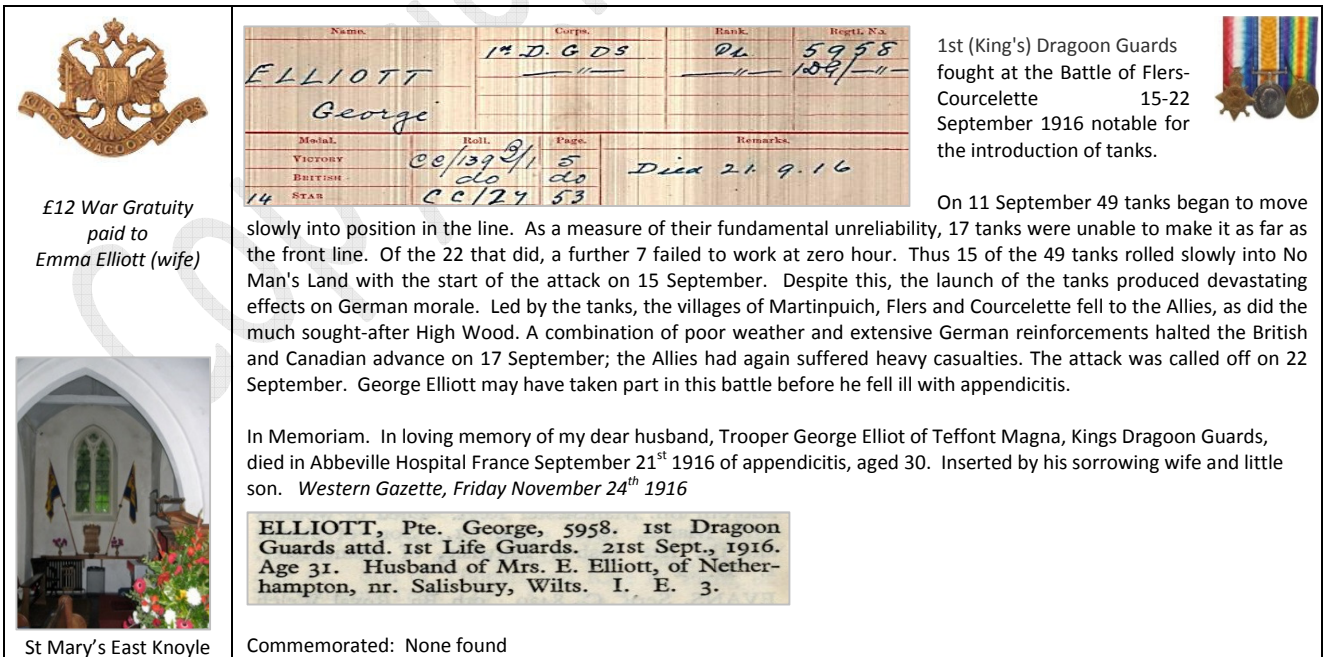 KING'S DRAGOON GUARDS
£12 War Gratuity
paid to
Emma Elliott (wife)
St Mary's East Knoyle
Name. Corps. Rank. Regtl. No.
1st D. G DS Pte 5958
ELLIOTT —"— —"— 1DG/—"—
George
Medal. Roll. Page. Remarks.
VICTORY CC/139 B/1 5 Died 21. 9. 16
BRITISH do do
14 STAR CC/27 53
1st (King's) Dragoon Guards
fought at the Battle of Flers-
Courcelette 15-22
September 1916 notable for
the introduction of tanks.
On 11 September 49 tanks began to move
slowly into position in the line. As a measure of their fundamental unreliability, 17 tanks were unable to make it as far as
the front line. Of the 22 that did, a further 7 failed to work at zero hour. Thus 15 of the 49 tanks rolled slowly into No
Man's Land with the start of the attack on 15 September. Despite this, the launch of the tanks produced devastating
effects on German morale. Led by the tanks, the villages of Martinpuich, Flers and Courcelette fell to the Allies, as did the
much sought-after High Wood. A combination of poor weather and extensive German reinforcements halted the British
and Canadian advance on 17 September; the Allies had again suffered heavy casualties. The attack was called off on 22
September. George Elliott may have taken part in this battle before he fell ill with appendicitis.
In Memoriam. In loving memory of my dear husband, Trooper George Elliot of Teffont Magna, Kings Dragoon Guards,
died in Abbeville Hospital France September 21st 1916 of appendicitis, aged 30. Inserted by his sorrowing wife and little
son. Western Gazette, Friday November 24th 1916
ELLIOTT, Pte. George, 5958. 1st Dragoon
Guards attd. 1st Life Guards. 21st Sept., 1916.
Age 31. Husband of Mrs. E. Elliott, of Nether-
hampton, nr. Salisbury, Wilts. I. E. 3.
Commemorated: None found